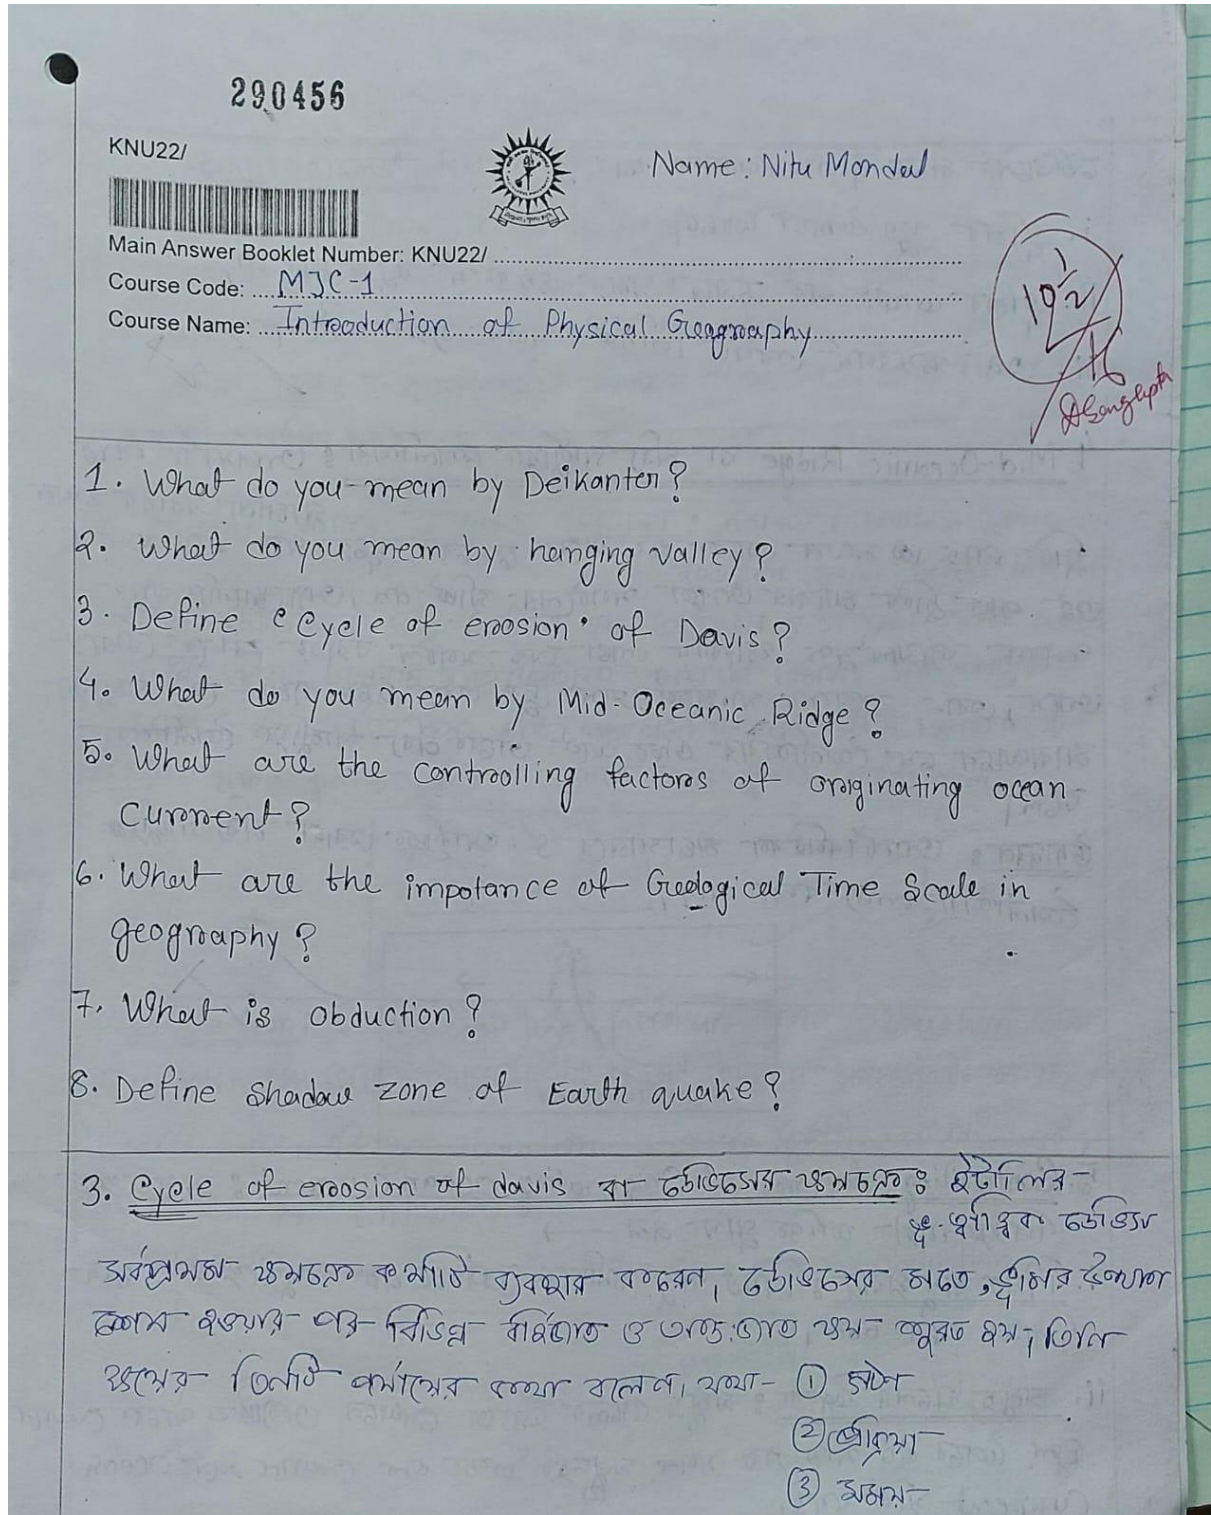 290456
KNU22/
Name: Nitu Mondal
Main Answer Booklet Number: KNU22/
Course Code: MJC-1
Course Name: Introduction of Physical Geography
10 1/2
16
DSengupta
1. What do you mean by Deikanter?
2. What do you mean by hanging valley?
3. Define "Cycle of erosion" of Davis?
4. What do you mean by Mid-Oceanic Ridge?
5. What are the controlling factors of originating ocean
current?
6. What are the impotance of Geological Time Scale in
geography?
7. What is obduction?
8. Define Shadow zone of Earth quake?
3. Cycle of erosion of davis বা ডেভিসের ক্ষয়চক্র:
ডেভিস
সর্বপ্রথম ক্ষয়চক্র কথাটি ব্যবহার করেন, ডেভিসের মতে, ভূমির উত্থান
শেষ হওয়ার পর বিভিন্ন বহির্জাত ও অন্তঃজাত ক্ষয় শুরু হয়, তিনি
ক্ষয়ের তিনটি পর্যায়ের কথা বলেন, যথা- ① গঠন
② প্রক্রিয়া
③ সময়